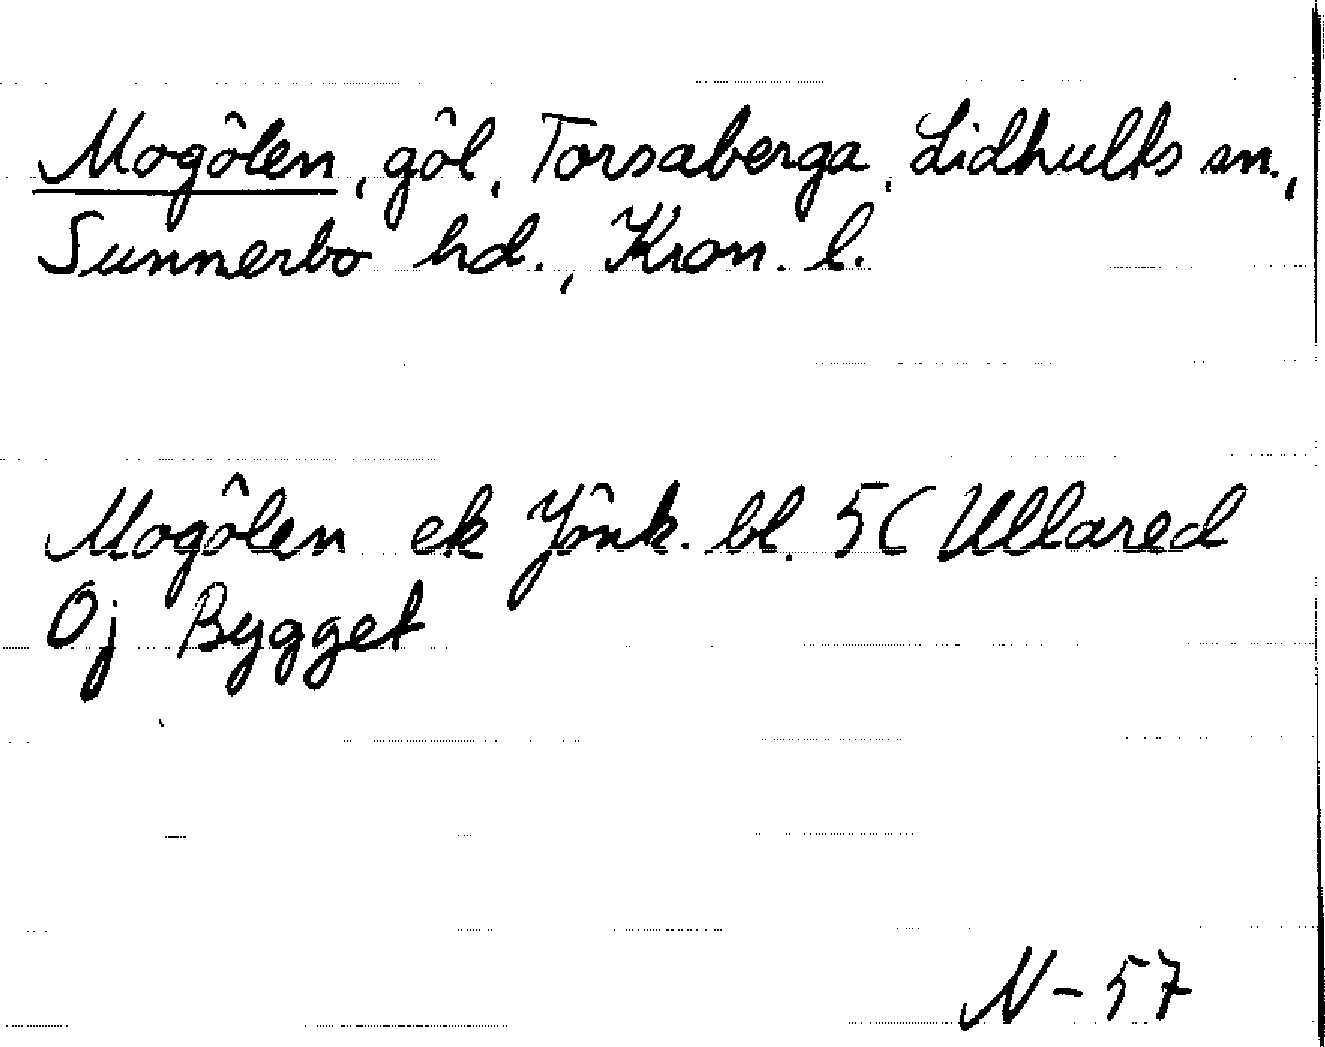 Mogölen, göl, Torsaberga, Lidhults sn.,
Sunnerbo hd., Kron. l.
Mogölen ek Jönk. bl. 5C Ullared
Oj Bygget
N-57